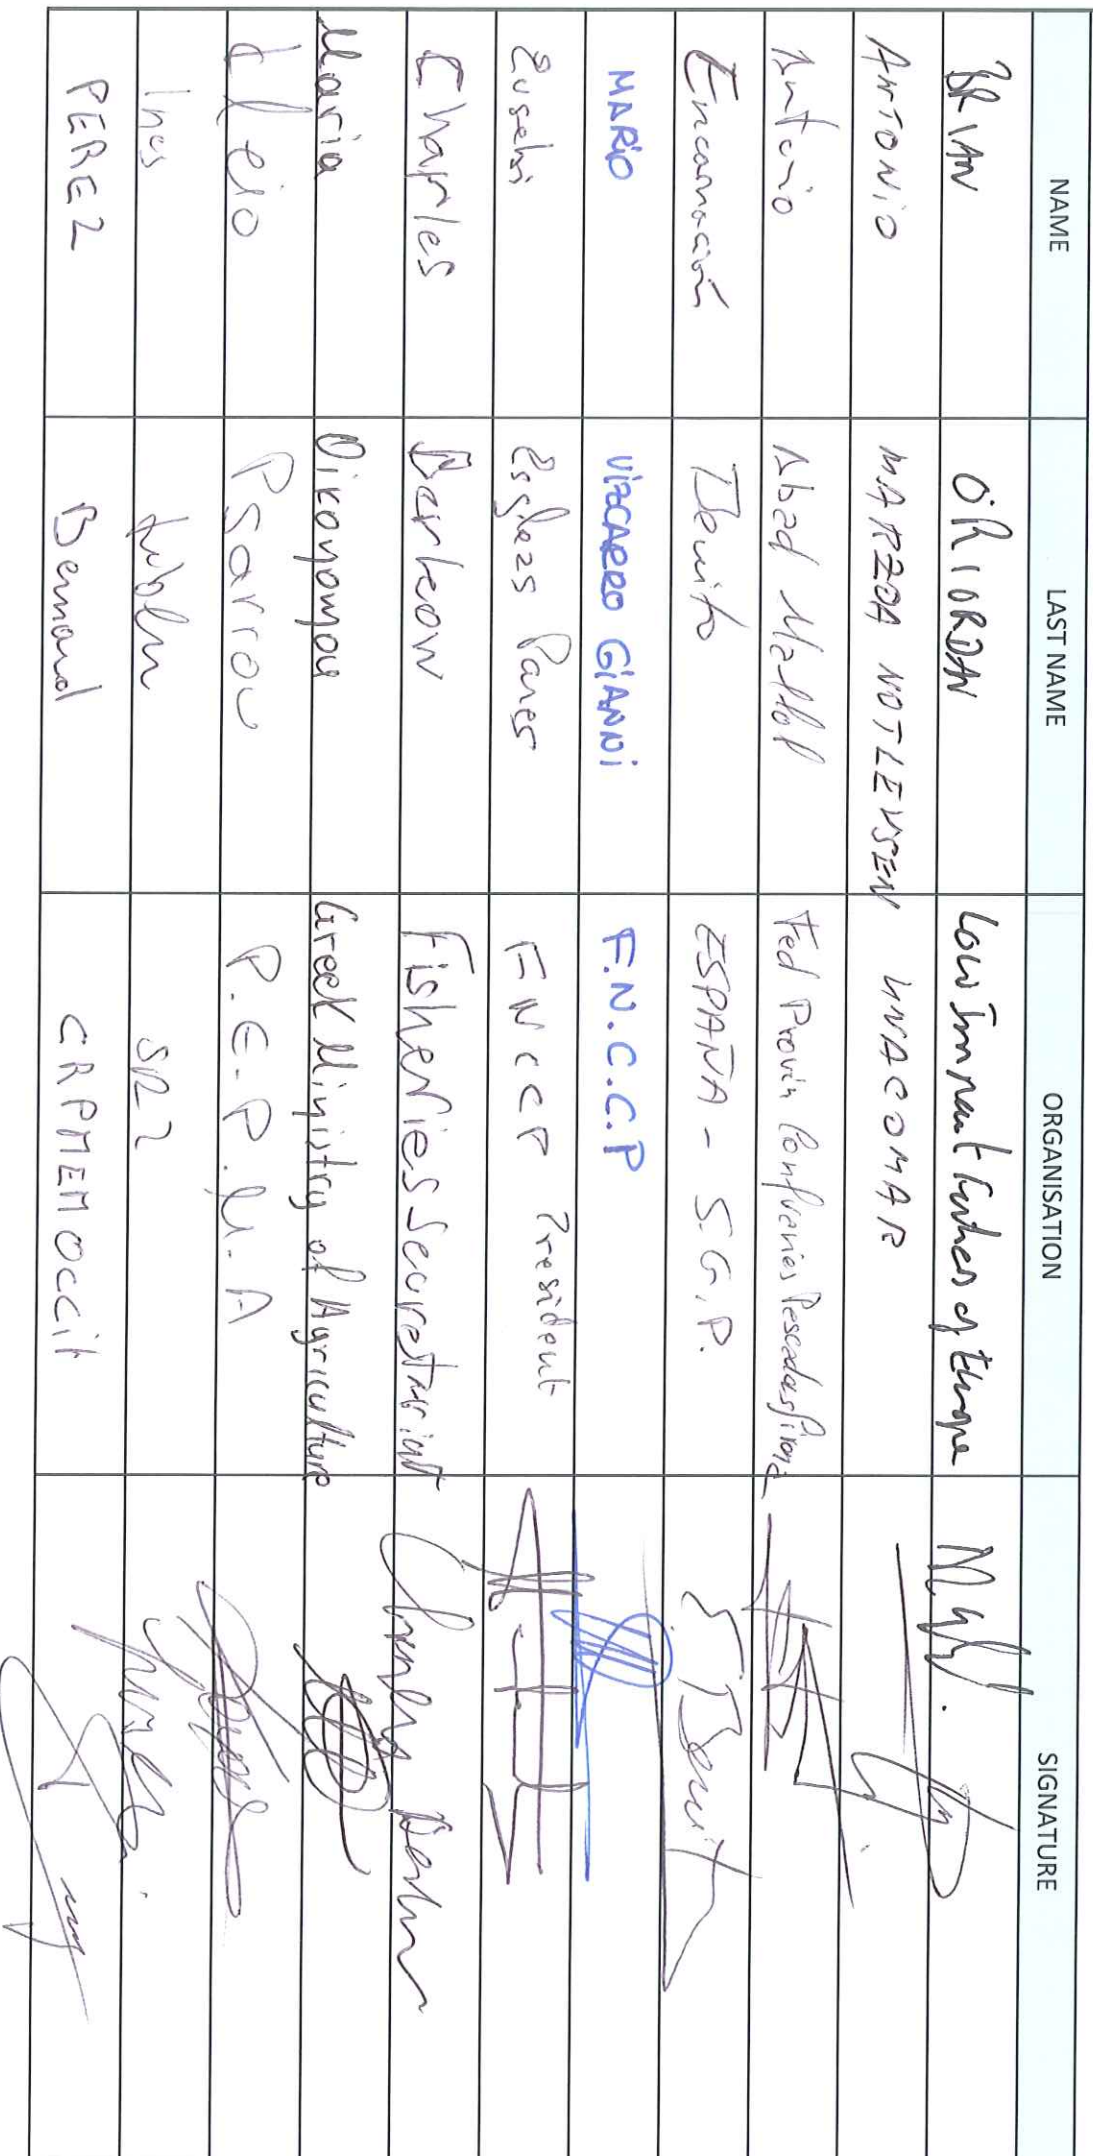 NAME LAST NAME ORGANISATION SIGNATURE
BRIAN O'RIORDAN Low Impact Fishers of Europe
ANTONIO MARZOA NOTLEVSEN UNACOMAR
Antonio Abad Mallol Fed Provin Confraries Pescadas Girona
Encarnación Benito ESPAÑA - S.G.P. E Benito
MARIO VIZCARRO GIANNI F.N.C.C.P
Eusebi Esgleas Pares FNCCP President
Charles Berkow Fisheries Secretariat Charles Berkow
Maria Oikonomou Greek Ministry of Agriculture
Psarrou P.E.P.M.A
Ines
PEREZ Bernard CRPMEM Occit